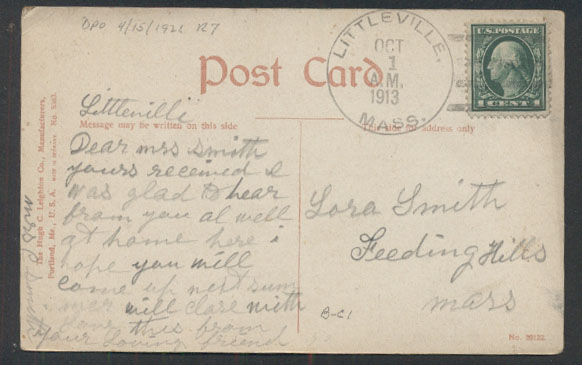 DPO 4/15/1922 R7
LITTLEVILLE,
OCT
1
A.M.
1913
MASS.
U.S. POSTAGE
1 CENT 1
Post Card
Littlevilli
Message may be written on this side
side for address only
Dear mrs smith
yours received I
was glad to hear
from you al well
at home here i
hope you will
come up next sum
mer will close with
love this from
Your Loving friend
Lora Smith
Feeding Hills
mass
B-C1
The Hugh C. Leighton Co., Manufacturers,
Portland, Me., U. S. A.
No.